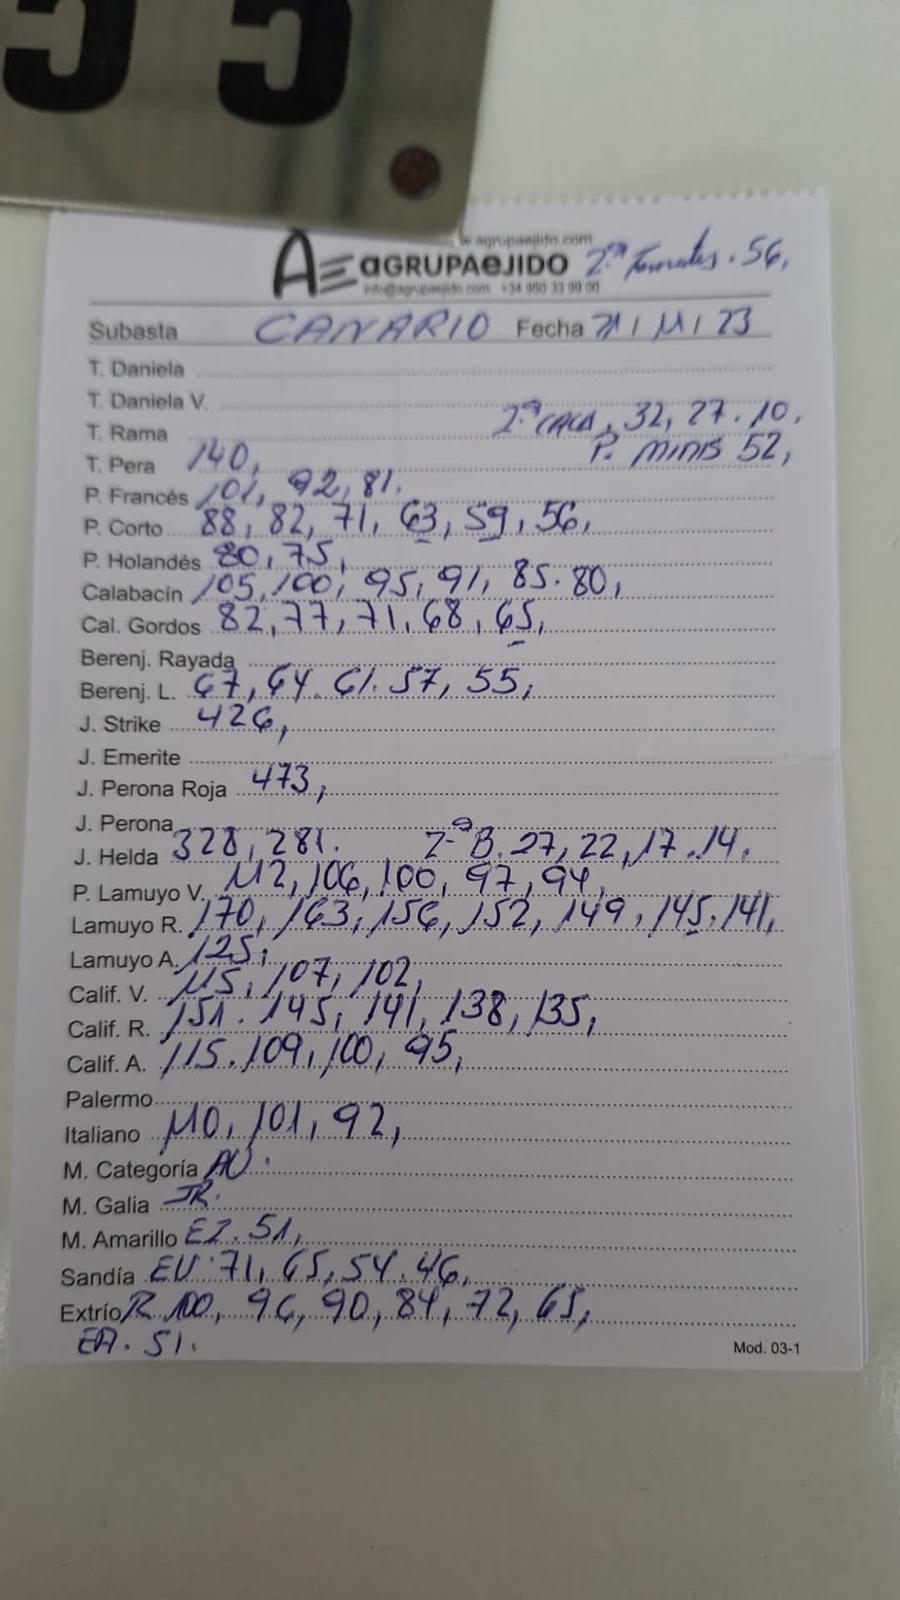 55
w.agrupaejido.com
AGRUPAEJIDO 2ª Tomates. 56,
info@agrupaejido.com +34 950 33 99 00
Subasta CANARIO Fecha 21 / 11 / 23
T. Daniela
T. Daniela V.
T. Rama 2ª CACA, 32, 27. 10.
P. MINIS 52,
T. Pera 140,
P. Francés 101, 92, 81.
P. Corto 88, 82, 71, 63, 59, 56,
P. Holandés 80, 75,
Calabacín 105, 100, 95, 91, 85. 80,
Cal. Gordos 82, 77, 71, 68, 65,
Berenj. Rayada
Berenj. L. 67, 64. 61. 57, 55,
J. Strike 426,
J. Emerite
J. Perona Roja 473,
J. Perona
J. Helda 328, 281. 2ª B. 27, 22, 17. 14.
P. Lamuyo V. 112, 106, 100, 97, 94,
Lamuyo R. 170, 163, 156, 152, 149, 145, 141,
Lamuyo A. 125,
Calif. V. 115, 107, 102,
Calif. R. 151. 145, 141, 138, 135,
Calif. A. 115. 109, 100, 95,
Palermo
Italiano 110, 101, 92,
M. Categoría AU.
M. Galia JR.
M. Amarillo EZ. 51,
Sandía EV. 71, 65, 54. 46,
Extrío R 100, 96, 90, 84, 72, 65,
EA. 51.
Mod. 03-1